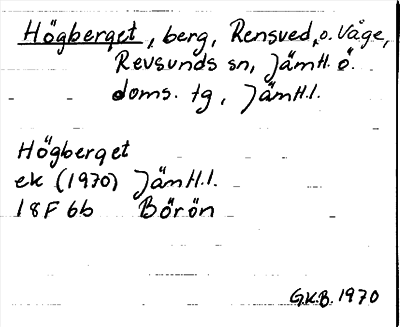 Högberget, berg, Rensved, o. Våge,
Revsunds sn, Jämtl. ö.
doms. tg, Jämtl.l.
Högberget
ek (1970) Jämtl.l.
18F 6b Börön
G.K.B. 1970